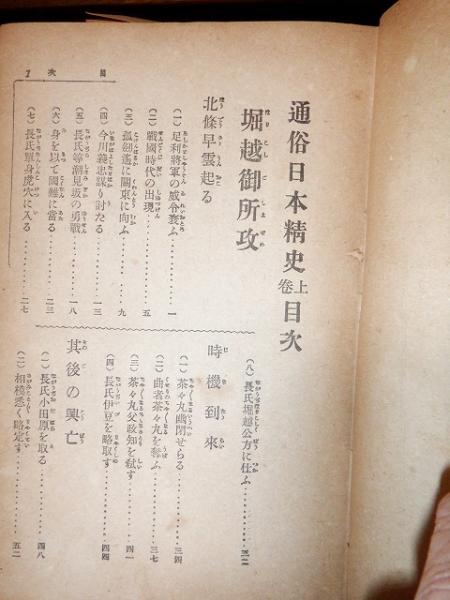 通俗日本精史上卷目次
堀越御所攻
北條早雲起る
(一)足利將軍の威令衰ふ…………一
(二)戰國時代の出現…………五
(三)孤劍遙に關東に向ふ…………九
(四)今川義忠謀り討たる…………一三
(五)長氏等潮見坂の勇戰…………一八
(六)身を以て國難に當る…………二三
(七)長氏單身虎穴に入る…………二七
(八)長氏堀越公方に仕ふ…………三二
時機到來
(一)茶々丸幽閉せらる…………三四
(二)曲者茶々丸を奪ふ…………三七
(三)茶々丸父政知を弑す…………四一
(四)長氏伊豆を略取す…………四四
其後の興亡
(一)長氏小田原を取る…………四八
(二)相模悉く略定す…………五二
目次
1